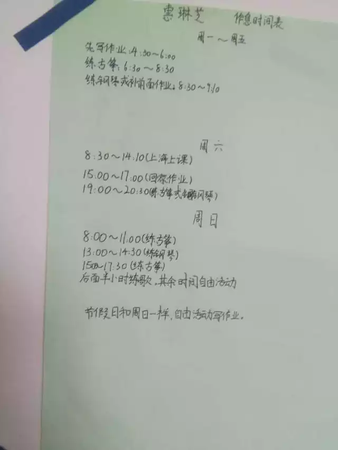 雷琳芝 作息时间表
周一～周五
先写作业:4:30～6:00
练古筝:6:30～8:30
练钢琴或补前面作业:8:30～9:10
周六
8:30～14:10(上海上课)
15:00～17:00(回家作业)
19:00～20:30(练古筝或钢琴)
周日
8:00～11:00(练古筝)
13:00～14:30(练钢琴)
15:00～17:30(练古筝)
后面半小时练歌,其余时间自由活动
节假日和周日一样,自由活动写作业。